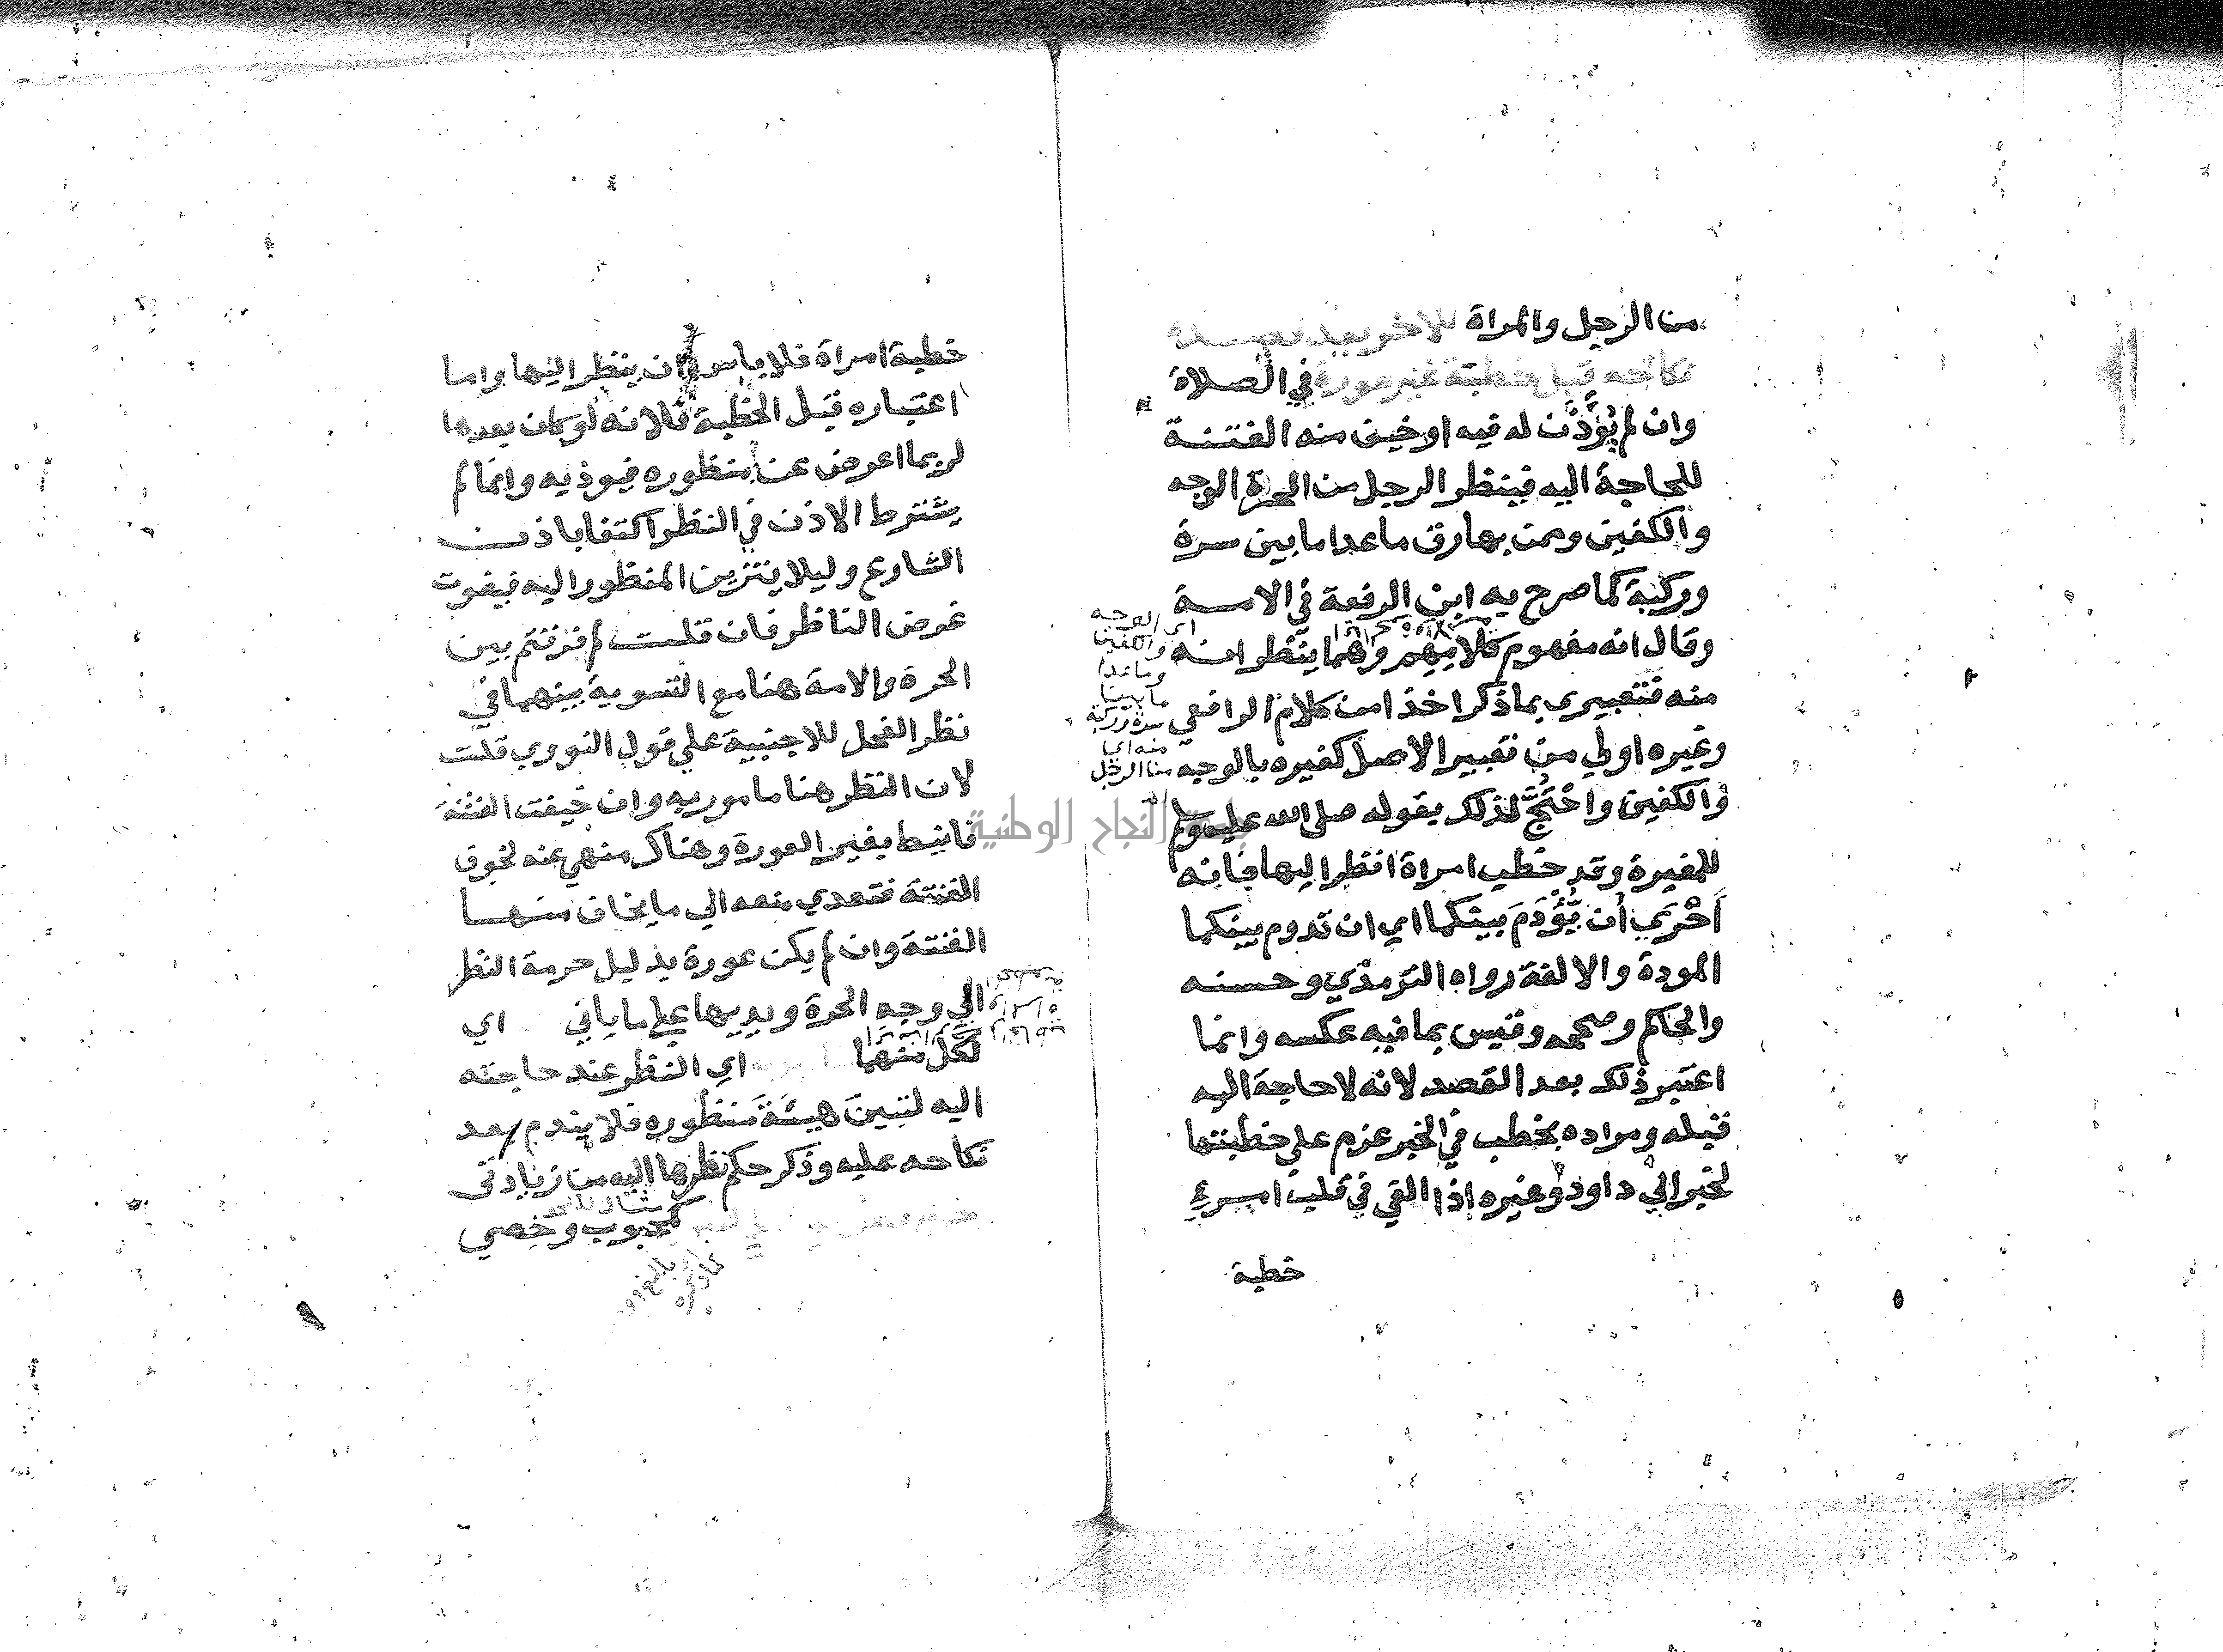 من الرجل والمراة للاخر بعد قصده
نكاحه قبل خطبة غير عورة في الصلاة
وان لم يؤذن له فيه او خيف منه الفتنة
للحاجة اليه فينظر الرجل من الحرة الوجه
والكفين وممن بها رق ما عدا ما بين سرة
وركبة كما صرح به ابن الرفعة في الامة
وقال انه مفهوم كلامهم وهما ينظرانه
منه فتعبيري بما ذكر اخذا من كلام الرافعي
وغيره اولي من تعبير الاصل كغيره بالوجه
والكفين واحتج لذلك بقوله صلى الله عليه وسلم
للمغيرة وقد خطب امراة انظر اليها فانه
احري ان يؤدم بينكما اي ان تدوم بينكما
المودة والالفة رواه الترمذي وحسنه
والحاكم وصححه وقيس بما فيه عكسه وانما
اعتبر ذلك بعد القصد لانه لا حاجة اليه
قبله ومراده بخطب في الخبر عزم علي خطبتها
لخبر ابي داود وغيره اذا القي في قلب امرء
خطبة
اي الوجه
والكفين
وما عدا
ما بين
سرة وركبة
منه اي
من الرجل
خطبة امراة فلا باس ان ينظر اليها واما
اعتباره قبل الخطبة فلانه لو كان بعدها
لربما اعرض عن منظوره فيوذيه وانما لم
يشترط الاذن في النظر اكتفا باذن
الشارع وليلا يتزين المنظور اليه فيفوت
غرض الناظر فان قلت لم فرقتم بين
الحرة والامة هنا مع التسوية بينهما في
نظر الفحل للاجنبية علي قول النووي قلت
لان النظر هنا مامور به وان خيفت الفتنة
فانيط بغير العورة وهناك منهي عنه لخوف
الفتنة فتعدي منعه الي ما يخاف منها
الفتنة وان لم يكن عورة بدليل حرمة النظر
الي وجه الحرة ويديها علي ما ياتي اي
لكل منهما اي النظر عند حاجته
اليه لتبين هيئة منظوره فلا يندم بعد
نكاحه عليه وذكر حكم نظرها اليه من زيادتي
كمجبوب وخصي
جامعة النجاح الوطنية